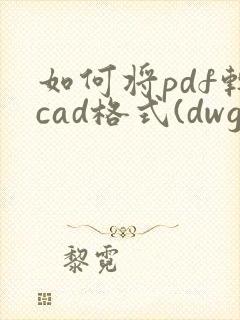 如何将pdf转
cad格式(dwg
黎霓